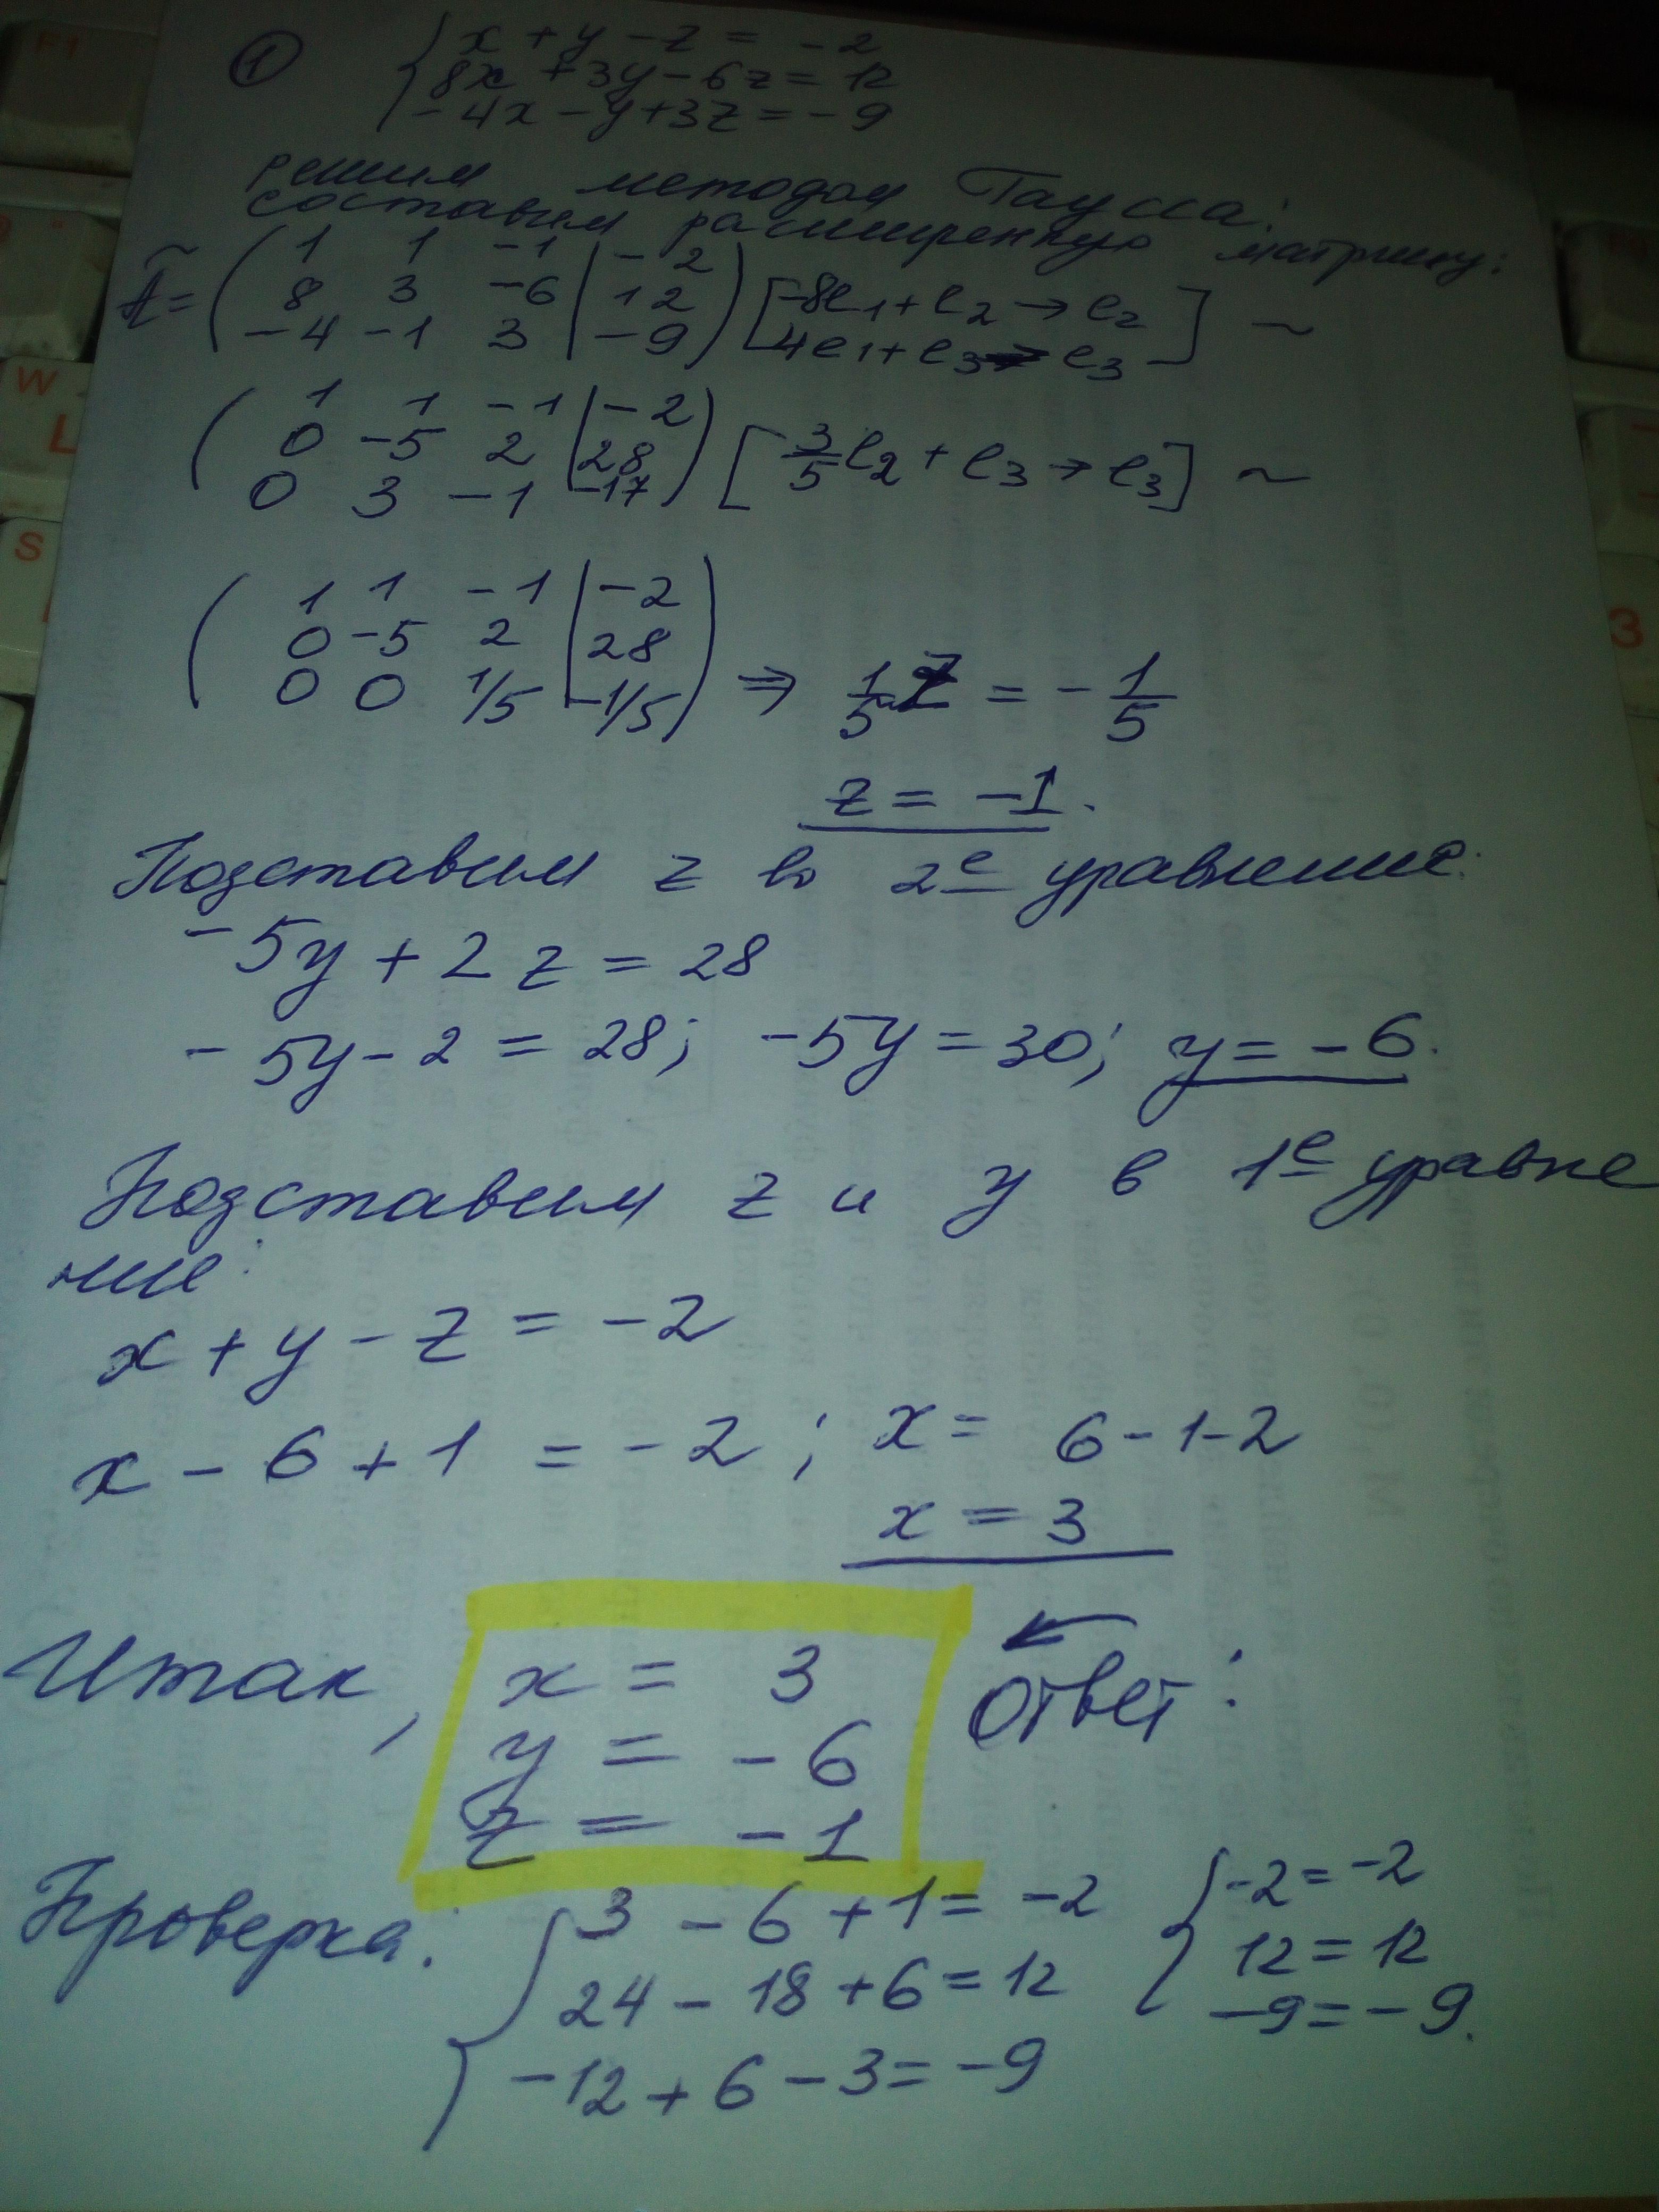 ① { x + y - z = -2
8x + 3y - 6z = 12
-4x - y + 3z = -9
решим методом Гаусса:
составим расширенную матрицу:
Ã = ( 1 1 -1 | -2
8 3 -6 | 12
-4 -1 3 | -9 ) [ -8e₁ + e₂ → e₂
4e₁ + e₃ → e₃ ] ~
( 1 1 -1 | -2
0 -5 2 | 28
0 3 -1 | -17 ) [ 3/5 e₂ + e₃ → e₃ ] ~
( 1 1 -1 | -2
0 -5 2 | 28
0 0 1/5 | -1/5 ) ⇒ 1/5 z = - 1/5
z = -1.
Подставим z во 2е уравнение:
-5y + 2z = 28
-5y - 2 = 28; -5y = 30; y = -6.
Подставим z и y в 1е уравне
ние:
x + y - z = -2
x - 6 + 1 = -2 ; x = 6 - 1 - 2
x = 3
Итак, x = 3
y = -6
z = -1
← Ответ:
Проверка: { 3 - 6 + 1 = -2
24 - 18 + 6 = 12
-12 + 6 - 3 = -9
{ -2 = -2
12 = 12
-9 = -9.
F1
W
L
S
3